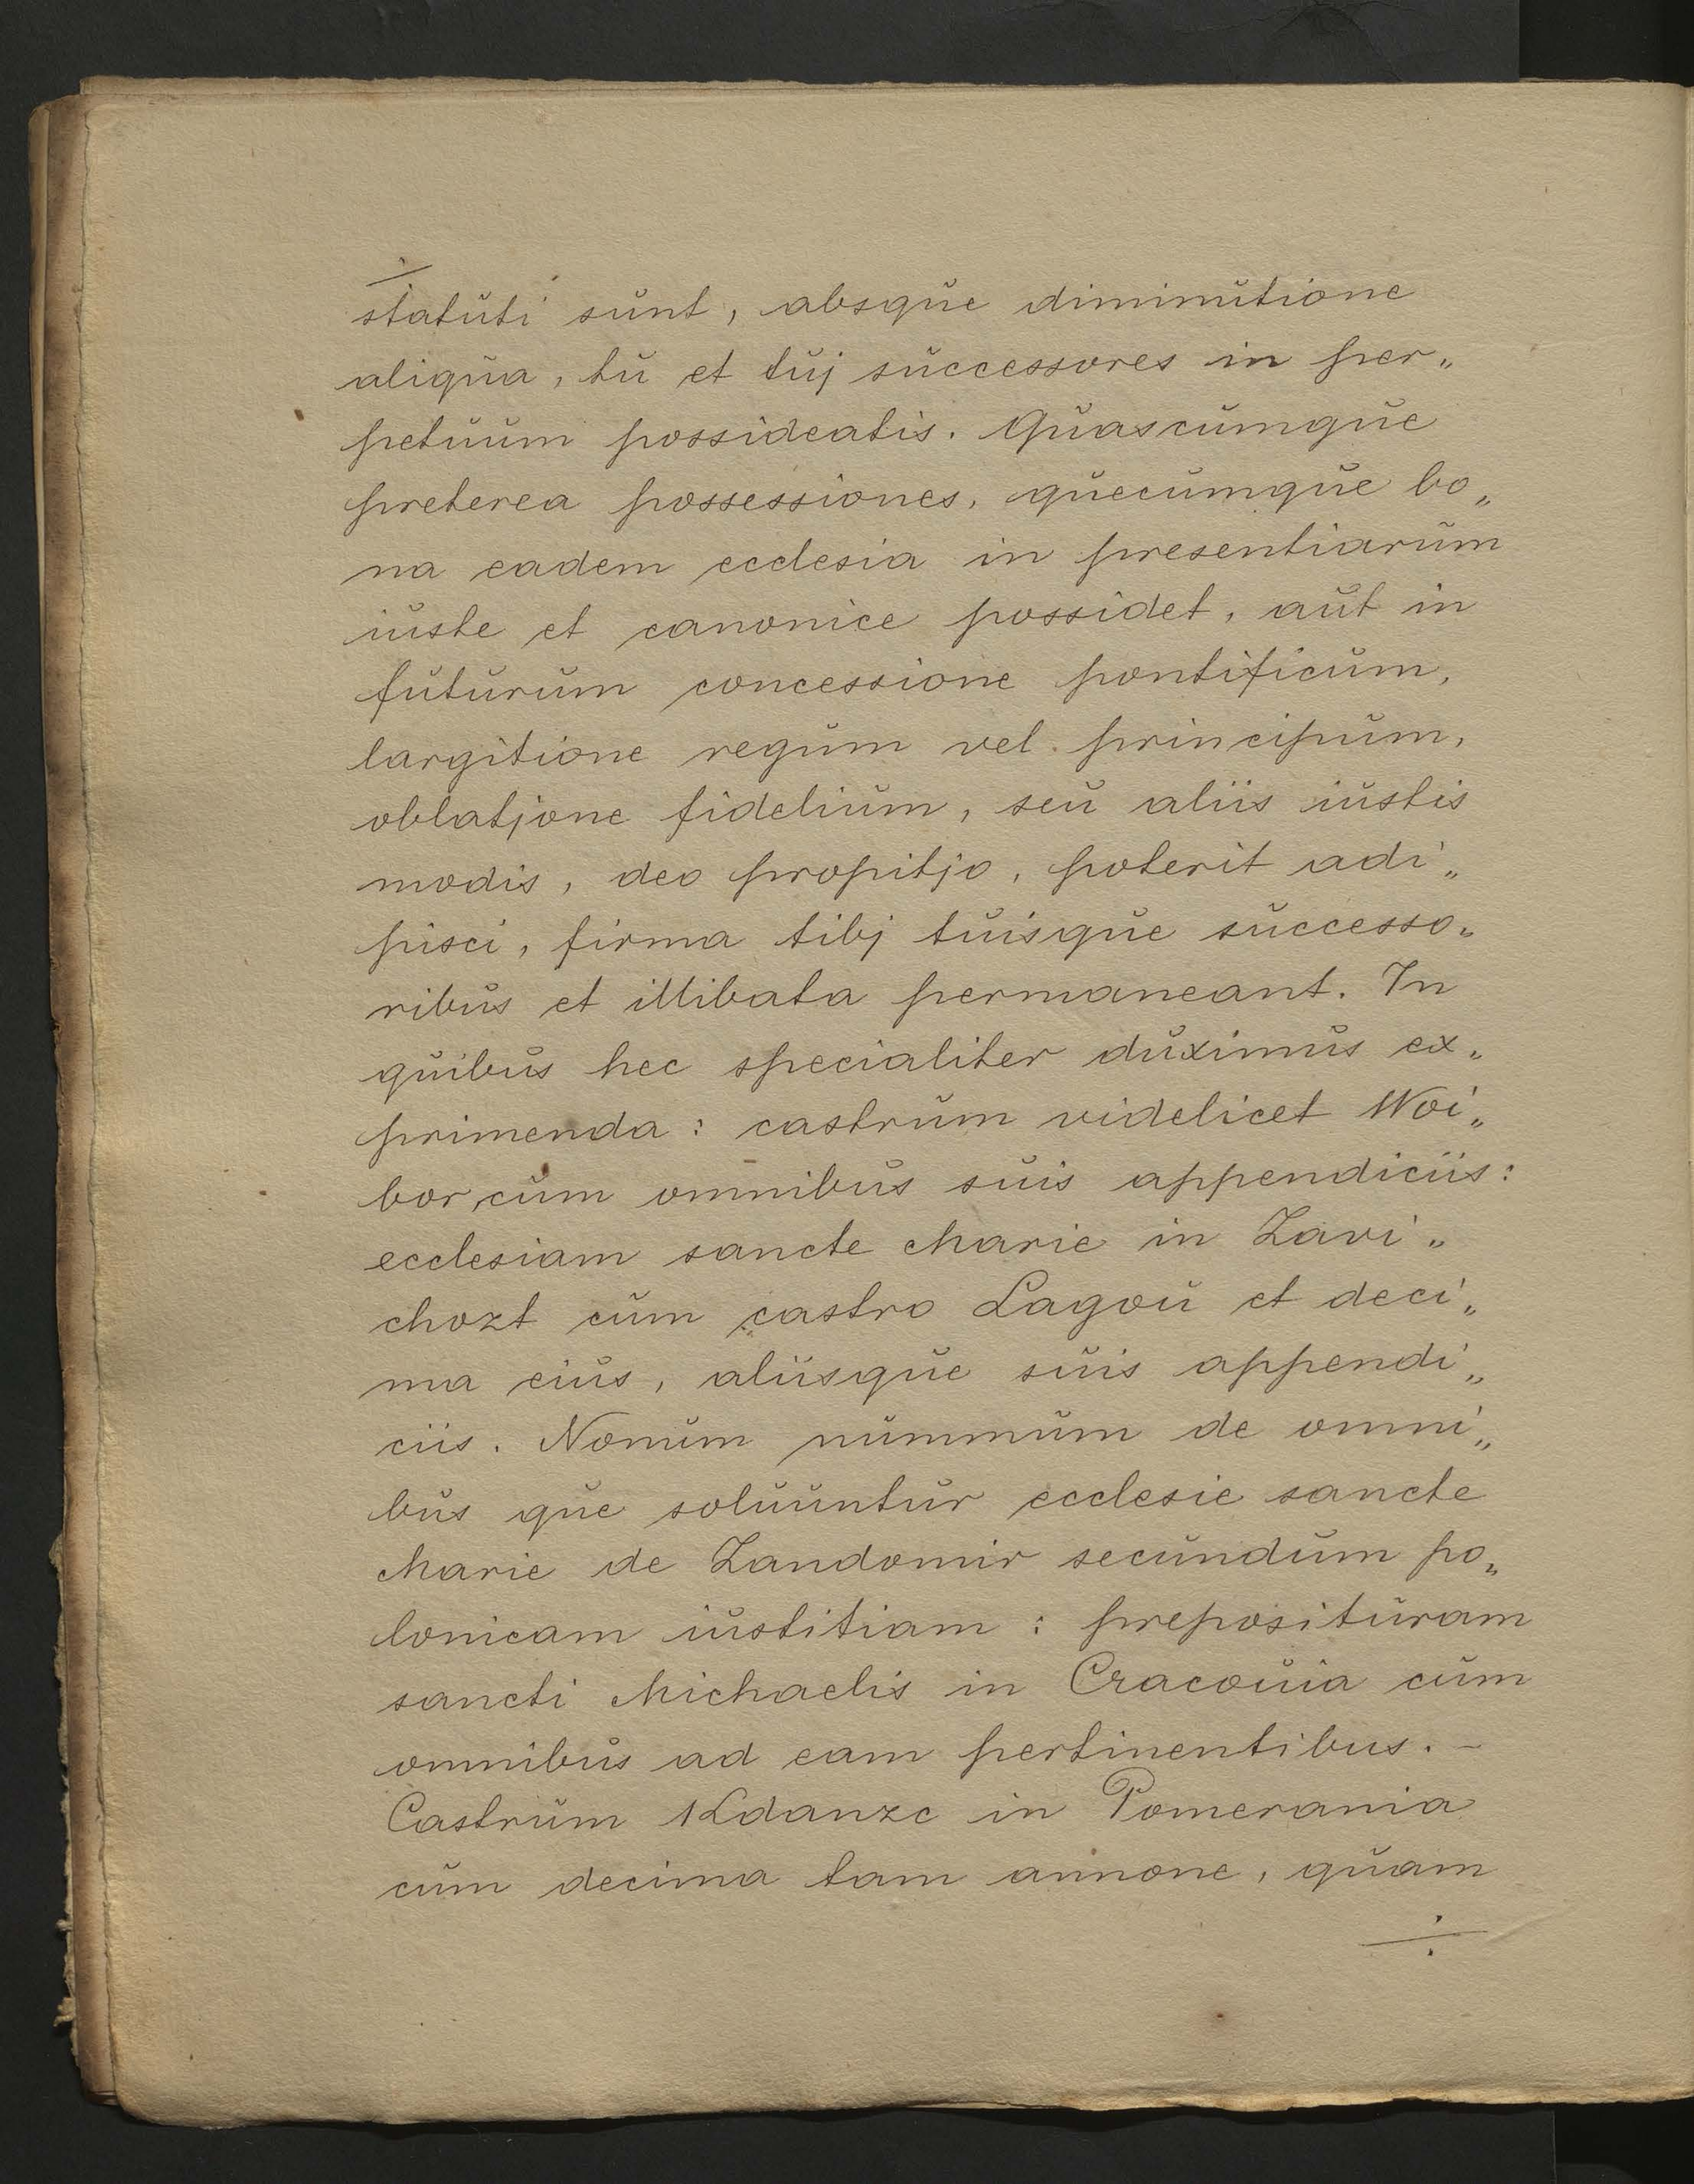 statuti sunt, absque diminutione
aliqua, tu et tuj successores in per„
petuum possideatis. Quascumque
preterea possessiones, quecumque bo„
na eadem ecclesia in presentiarum
iuste et canonice possidet, aut in
futurum concessione pontificum,
largitione regum vel principum,
oblatjone fidelium, seu aliis iustis
modis, deo propitjo, poterit adi„
pisci, firma tibj tuisque successo„
ribus et illibata permaneant. In
quibus hec specialiter duximus ex„
primenda: castrum videlicet Woi„
bor, cum omnibus suis appendiciis:
ecclesiam sancte Marie in Zavi„
chozt cum castro Lagou et deci„
ma eius, aliisque suis appendi„
ciis. Nonum nummum de omni„
bus que soluuntur ecclesie sancte
Marie de Zandomir secundum po„
lonicam iustitiam: preposituram
sancti Michaelis in Cracouia cum
omnibus ad eam pertinentibus. –
Castrum Kdanzc in Pomerania
cum decima tam annone, quam
÷